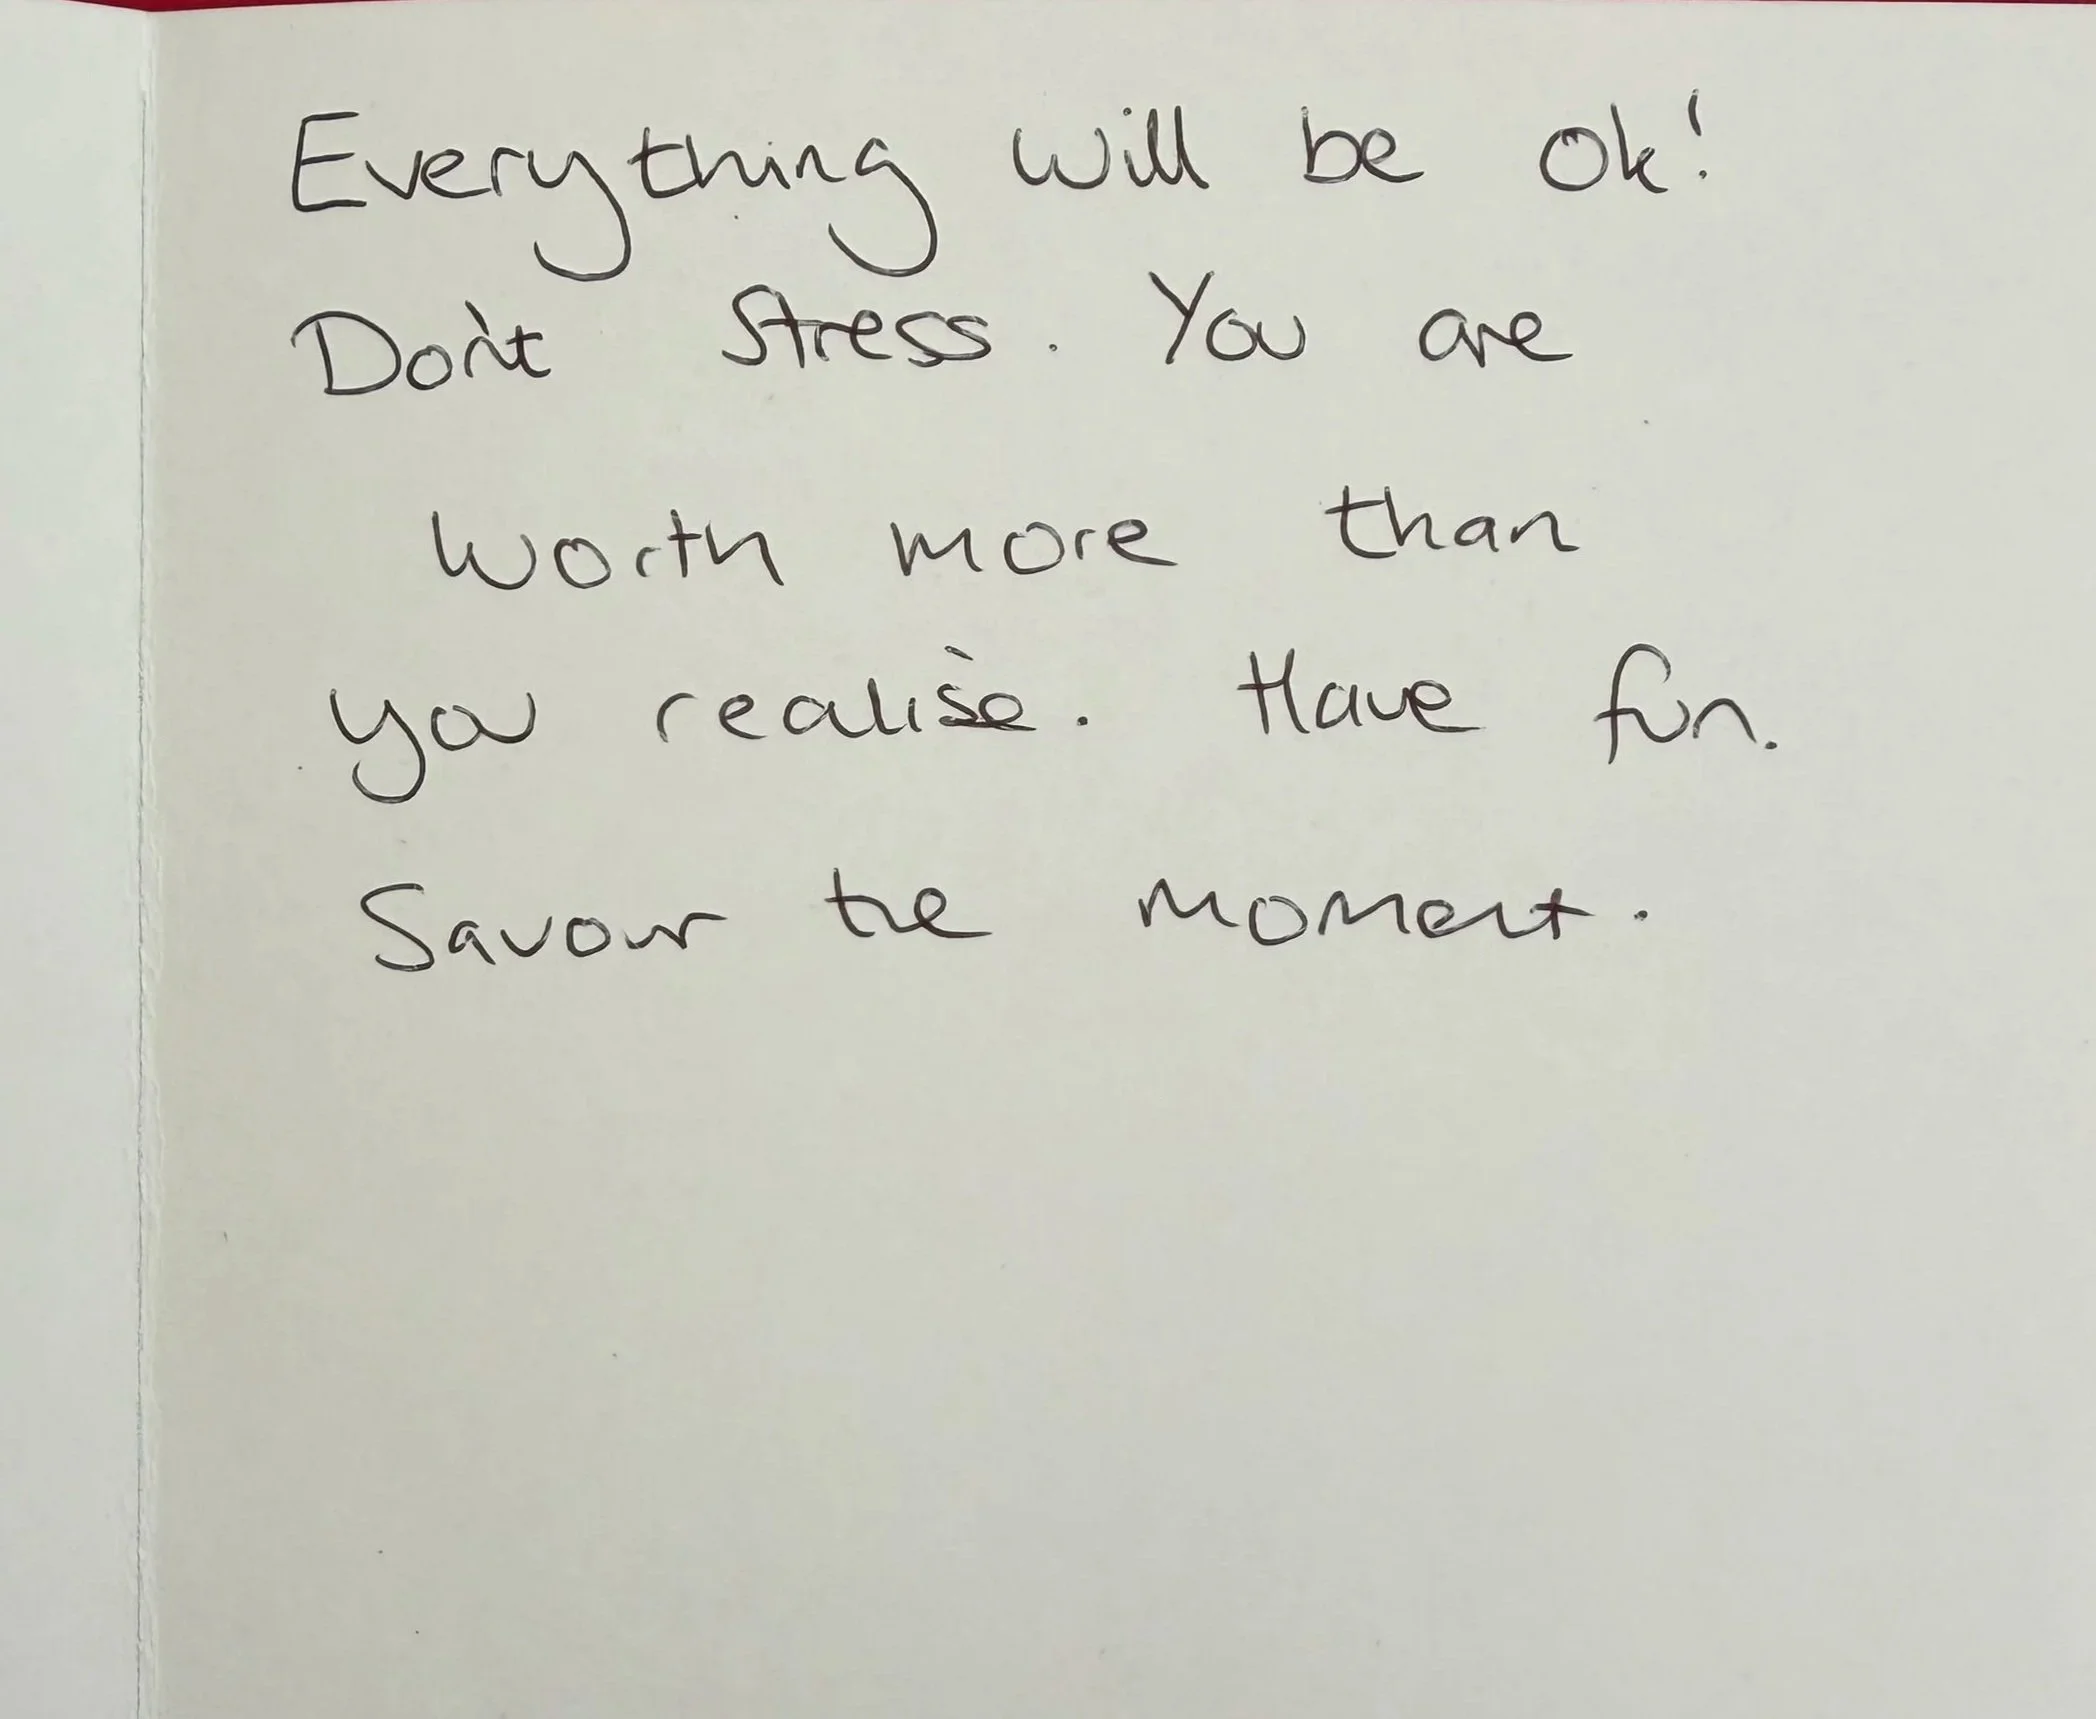 Everything will be Ok!
Don't Stress. You are
Worth more than
you realise. Have fun.
Savour the moment.